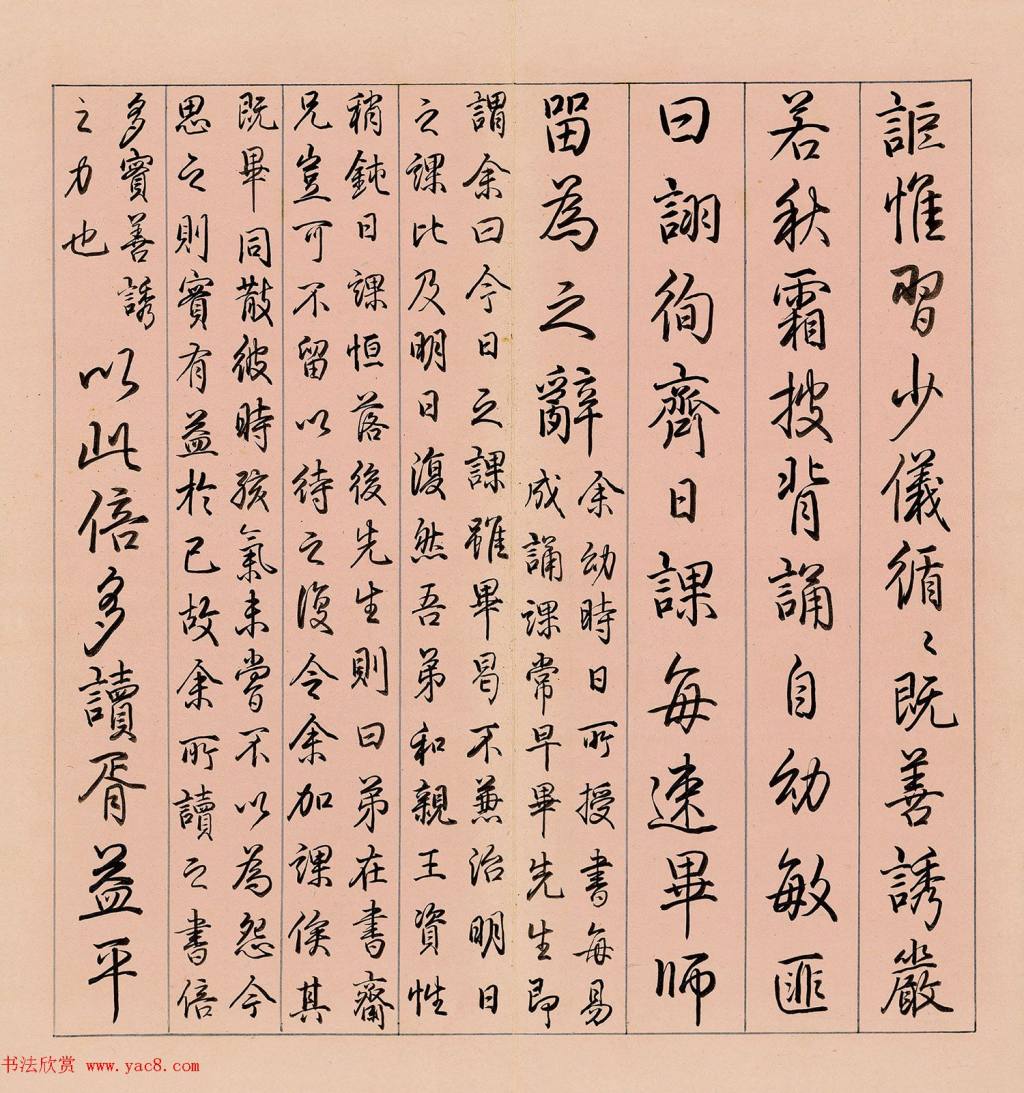 詎惟習少儀循〻既善誘嚴
若秋霜披背誦自幼敏匪
曰詡徇齊日課每速畢師
留為之辭
余幼時日所授書每易
成誦課常早畢先生即
謂余曰今日之課雖畢曷不兼治明日
之課比及明日復然吾弟和親王資性
稍鈍日課恒落後先生則曰弟在書齋
兄豈可不留以待之復令余加課俟其
既畢同散彼時孩氣未嘗不以為怨今
思之則實有益於己故余所讀之書倍
多實善誘
之力也
以此倍多讀胥益平
书法欣赏 www.yac8.com